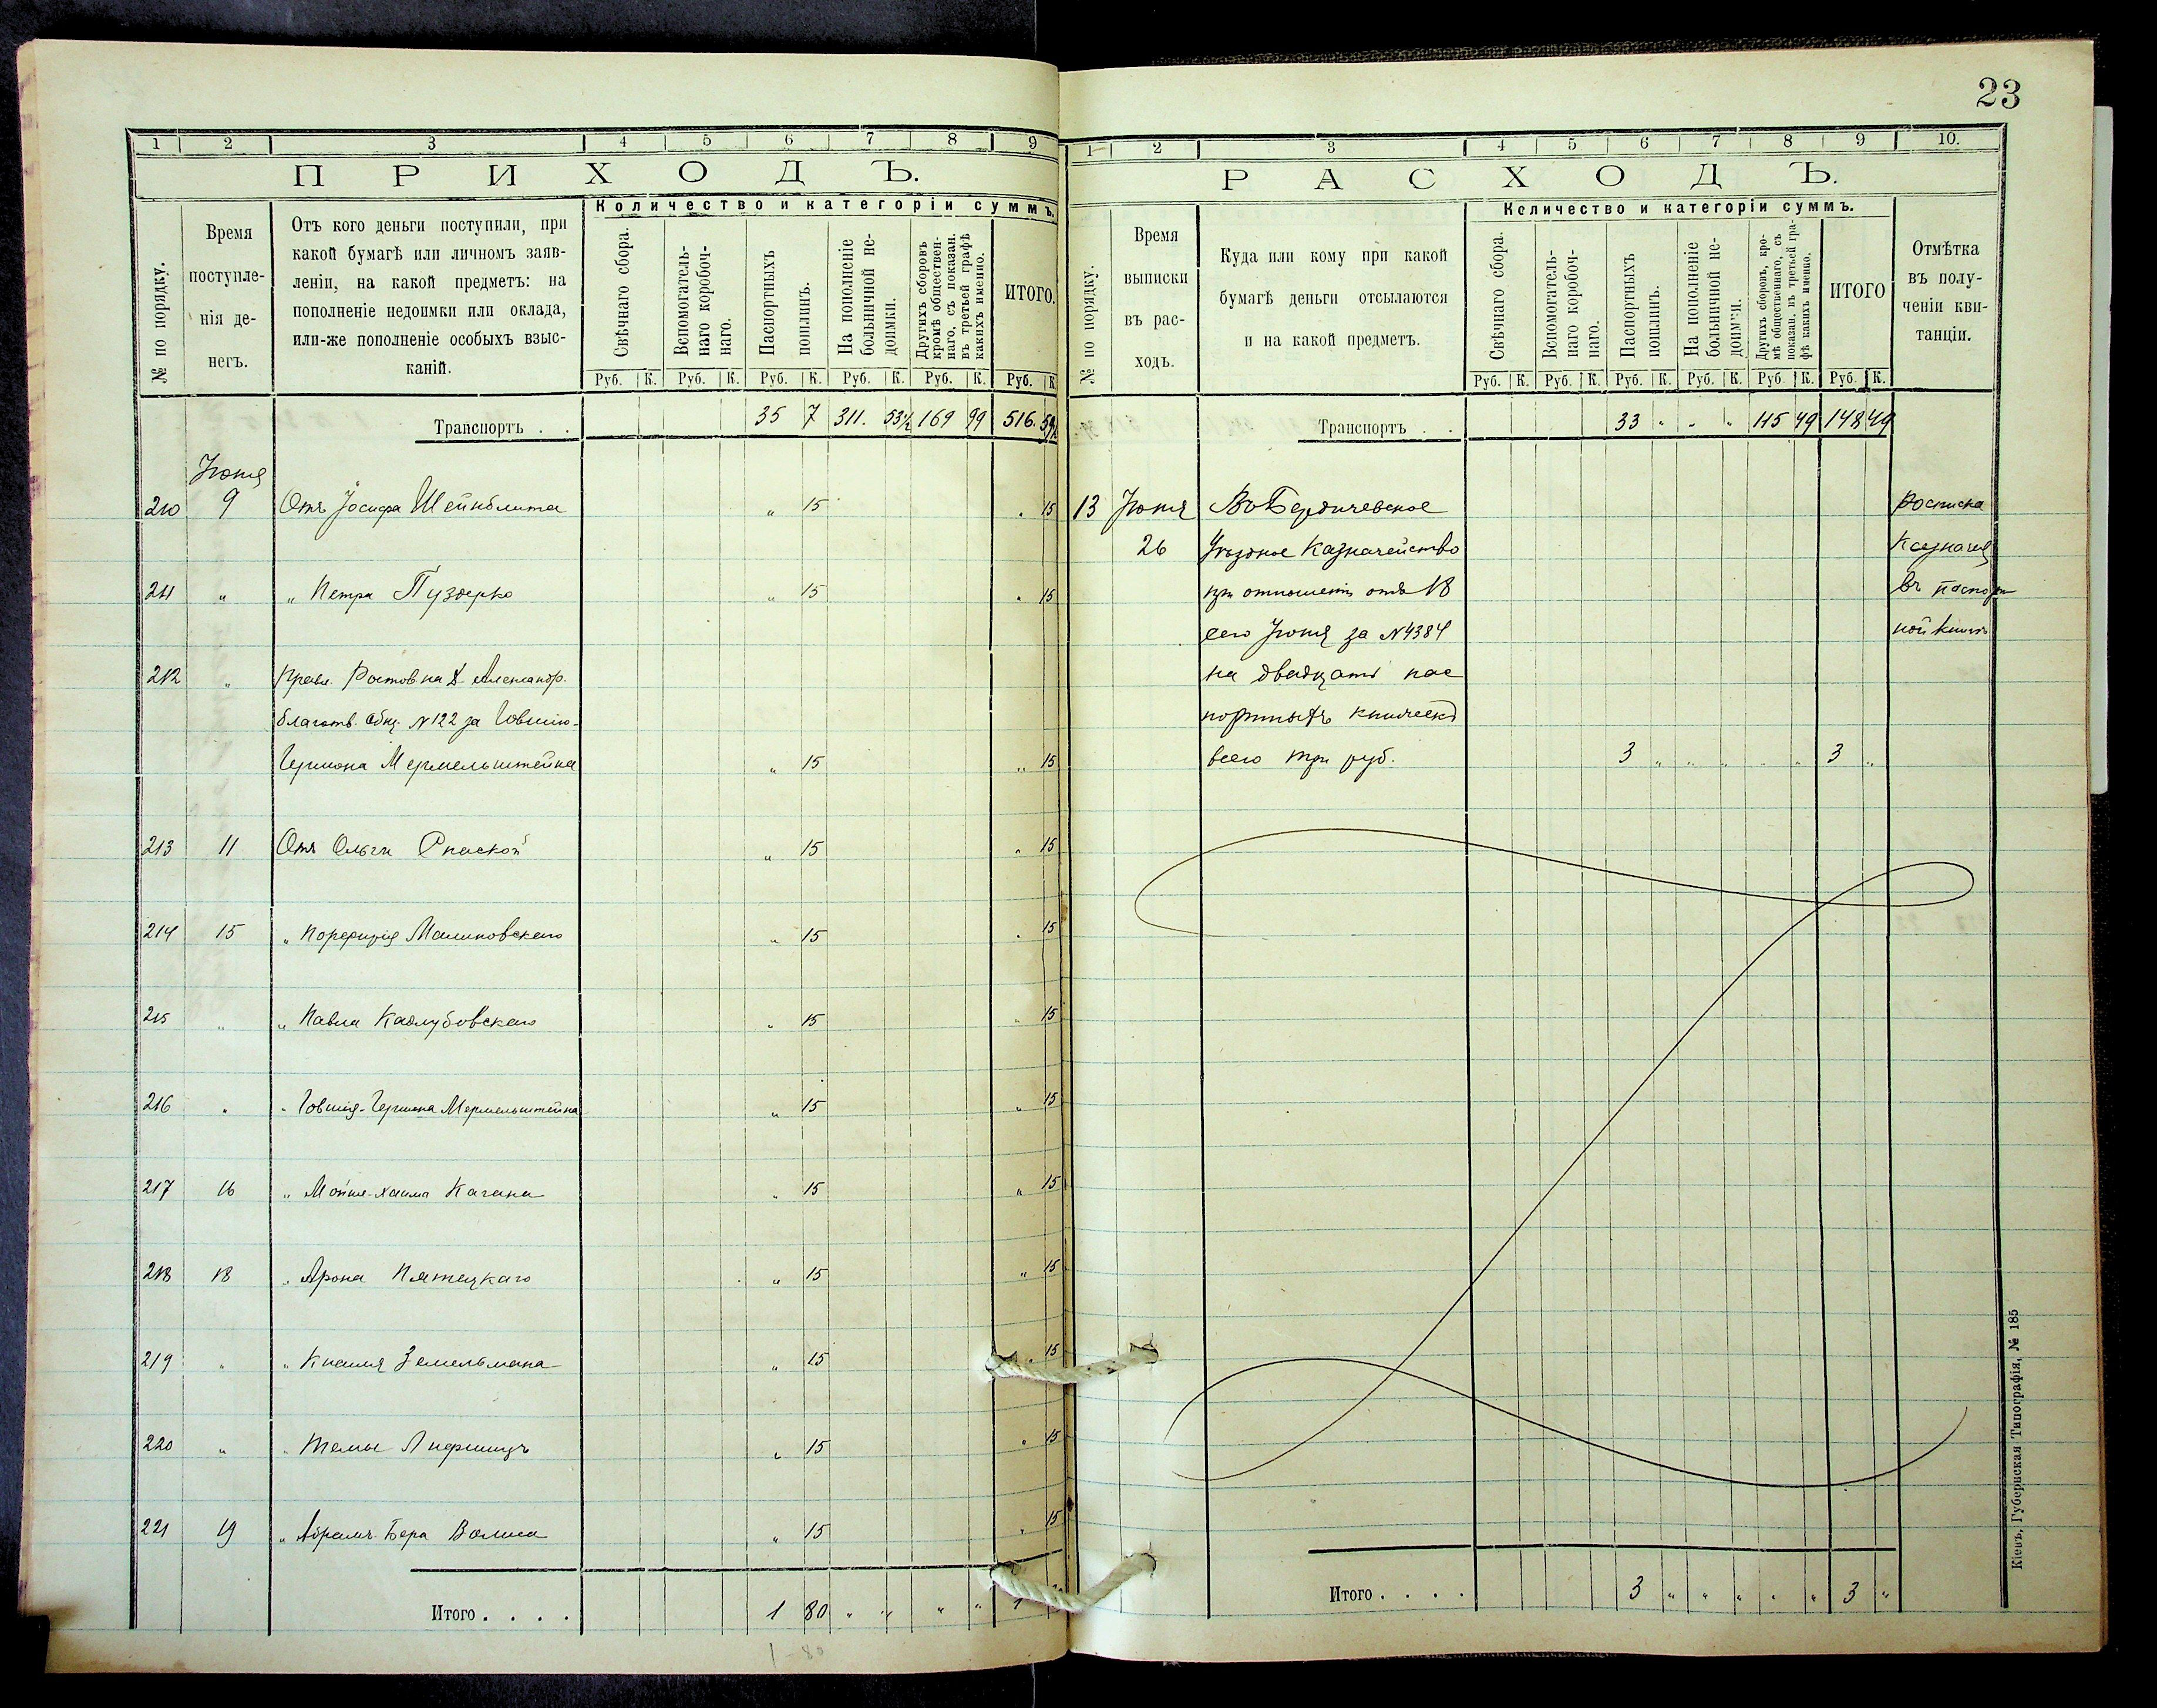 23
1 2 3 4 5 6 7 8 9
ПРИХОДЪ.
№ по порядку.
Время поступле-
нія де-
негъ.
Отъ кого деньги поступили, при
какой бумагѣ или личномъ заяв-
леніи, на какой предметъ: на
пополненіе недоимки или оклада,
или-же пополненіе особыхъ взыс-
каній.
Количество и категоріи суммъ.
Свѣчнаго сбора.
Вспомогатель-
наго коробоч-
наго.
Паспортныхъ
пошлинъ.
На пополненіе
больничной не-
доимки.
Другихъ сборовъ
кромѣ обществен-
наго, съ показан.
въ третьей графѣ
какихъ именно.
ИТОГО.
Руб. К. Руб. К. Руб. К. Руб. К. Руб. К. Руб. К.
Транспортъ . . 35 7 311. 53½ 169 99 516.
Іюня
210 9 Отъ Іосифа Шейнблита „ 15 „ 15
211 „ „ Петра Пуздерко „ 15 „ 15
212 „ Правл. Ростов на Д. Александр.
благотв. Общ. №122 за Іовшію-
Гершона Мермельштейна „ 15 „ 15
213 11 Отъ Ольги „ 15 „ 15
214 15 „ Порфирія Малиновскаго „ 15 „ 15
215 „ „ Павла Кадлубовскаго „ 15 „ 15
216 „ „ Іовшія-Гершона Мермельштейна „ 15 „ 15
217 16 „ Мойше-Хаима Кагана „ 15 „ 15
218 18 „ Арона Пятецкаго „ 15 „ 15
219 „ „ Земельмана „ 15 „ 15
220 „ „ Темы Лифшицъ „ 15 „ 15
221 19 „ Абрамъ-Бера „ 15 „ 15
Итого . . . . 1 80 „ „ „ „ 1
1-80
1 2 3 4 5 6 7 8 9 10.
РАСХОДЪ.
№ по порядку.
Время
выписки
въ рас-
ходъ.
Куда или кому при какой
бумагѣ деньги отсылаются
и на какой предметъ.
Количество и категоріи суммъ.
Свѣчнаго сбора.
Вспомогатель-
наго коробоч-
наго.
Паспортныхъ
пошлинъ.
На пополненіе
больничной не-
доимки.
Другихъ сборовъ, кро-
мѣ общественнаго, съ
показан. въ третьей гра-
фѣ какихъ именно.
ИТОГО
Отмѣтка
въ полу-
ченіи кви-
танціи.
Руб. К. Руб. К. Руб. К. Руб. К. Руб К. Руб К.
Транспортъ . . 33 „ „ „ 115 49 148 49
13 Іюня Въ Бердичевское Росписка
26 Уѣздное Казначейство Казначея
при отношеніи отъ 18 въ паспорт
сего Іюня за №4384 ной книгѣ
на двадцать пас
портныхъ книжекъ
всего три руб. 3 „ „ „ „ „ 3 „
Итого . . . . 3 „ „ „ „ „ 3 „
Кіевъ, Губернская Типографія, № 185